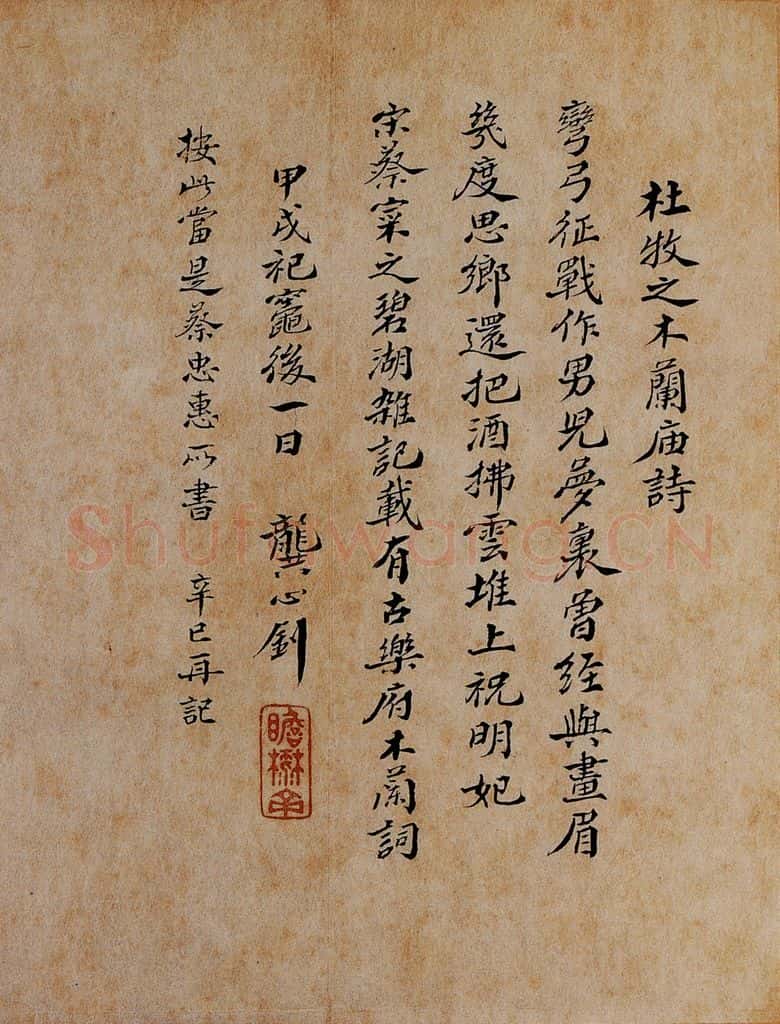 杜牧之木蘭庙詩
彎弓征戰作男児夢裏曽経與畫眉
幾度思鄉還把酒拂雲堆上祝明妃
宋蔡寀之碧湖雜記載有古樂府木蘭詞
甲戌祀竈後一日 龔心釗
瞻樾印
按此當是蔡忠惠所書 辛巳再記
ShufaWang.CN